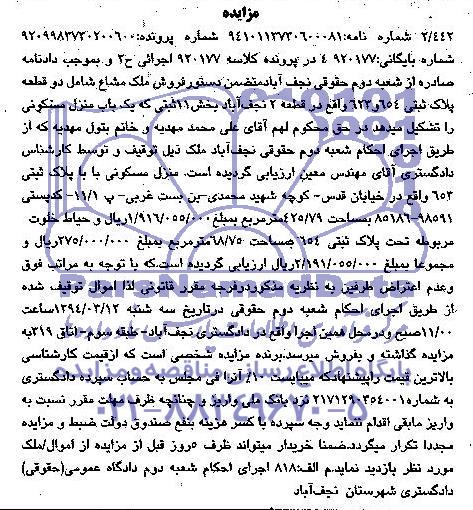 مزایده
۲/۴۴۲ شماره نامه:۹۴۱۰۱۱۳۷۳۰۶۰۰۰۸۱ شماره پرونده:۹۲۰۹۹۸۳۷۳۰۲۰۰۶۰۰
شماره بایگانی:۹۲۰۱۷۷ ۴ در پرونده کلاسه ۹۲۰۱۷۷ اجرائی ح۲ و بموجب دادنامه
صادره از شعبه دوم حقوقی نجف آبادمتضمن دستورفروش ملک مشاع شامل دو قطعه
پلاک ثبتی ۶۵۴و۶۲۳ واقع در قطعه ۲ نجف‌آباد بخش۱۱ثبتی که یک باب منزل مسکونی
را تشکیل میدهد در حق محکوم لهم آقای علی محمد مهدیه و خانم بتول مهدیه که از
طریق اجرای احکام شعبه دوم حقوقی نجف‌آباد ملک ذیل توقیف و توسط کارشناس
دادگستری آقای مهندس معین ارزیابی گردیده است. منزل مسکونی با پلاک ثبتی
۶۵۳ واقع در خیابان قدس- کوچه شهید محمدی-بن بست غربی- پ ۱۱/۱- کدپستی
۹۸۵۹۱-۸۵۱۸۶ بمساحت ۴۲۵/۷۹مترمربع بمبلغ۱/۹۱۶/۰۵۵/۰۰۰ریال و حیاط خلوت
مربوطه تحت پلاک ثبتی ۶۵۴ بمساحت ۶۸/۷۵مترمربع بمبلغ ۲۷۵/۰۰۰/۰۰۰ریال و
مجموعا بمبلغ ۲/۱۹۱/۰۵۵/۰۰۰ریال ارزیابی گردیده است.که با توجه به مراتب فوق
وعدم اعتراض طرفین به نظریه مذکوردرفرجه مقرر قانونی لذا اموال توقیف شده
از طریق اجرای احکام شعبه دوم حقوقی درتاریخ سه شنبه ۱۳۹۴/۰۳/۱۲ساعت
۱۱/۰۰صبح ودرمحل همین اجرا واقع در دادگستری نجف‌آباد- طبقه سوم- اتاق ۳۱۹به
مزایده گذاشته و بفروش میرسد.برنده مزایده شخصی است که ازقیمت کارشناسی
بالاترین قیمت راپیشنهادکه میبایست ۱۰٪ آنرا فی مجلس به حساب سپرده دادگستری
به شماره۲۱۷۱۲۹۰۳۵۴۰۰۱ نزد بانک ملی واریز و چنانچه ظرف مهلت مقرر نسبت به
واریز مابقی اقدام ننماید وجه سپرده با کسر هزینه بنفع صندوق دولت ضبط و مزایده
مجددا تکرار میگردد.ضمنا خریدار میتواند ظرف ۵روز قبل از مزایده از اموال/ملک
مورد نظر بازدید نماید.م الف:۸۱۸ اجرای احکام شعبه دوم دادگاه عمومی(حقوقی)
دادگستری شهرستان نجف‌آباد
ParsNamadData
پایگاه اطلاع رسانی مناقصه و مزایده
۰۲۱-۸۸۳۴۹۶۷۰-۵